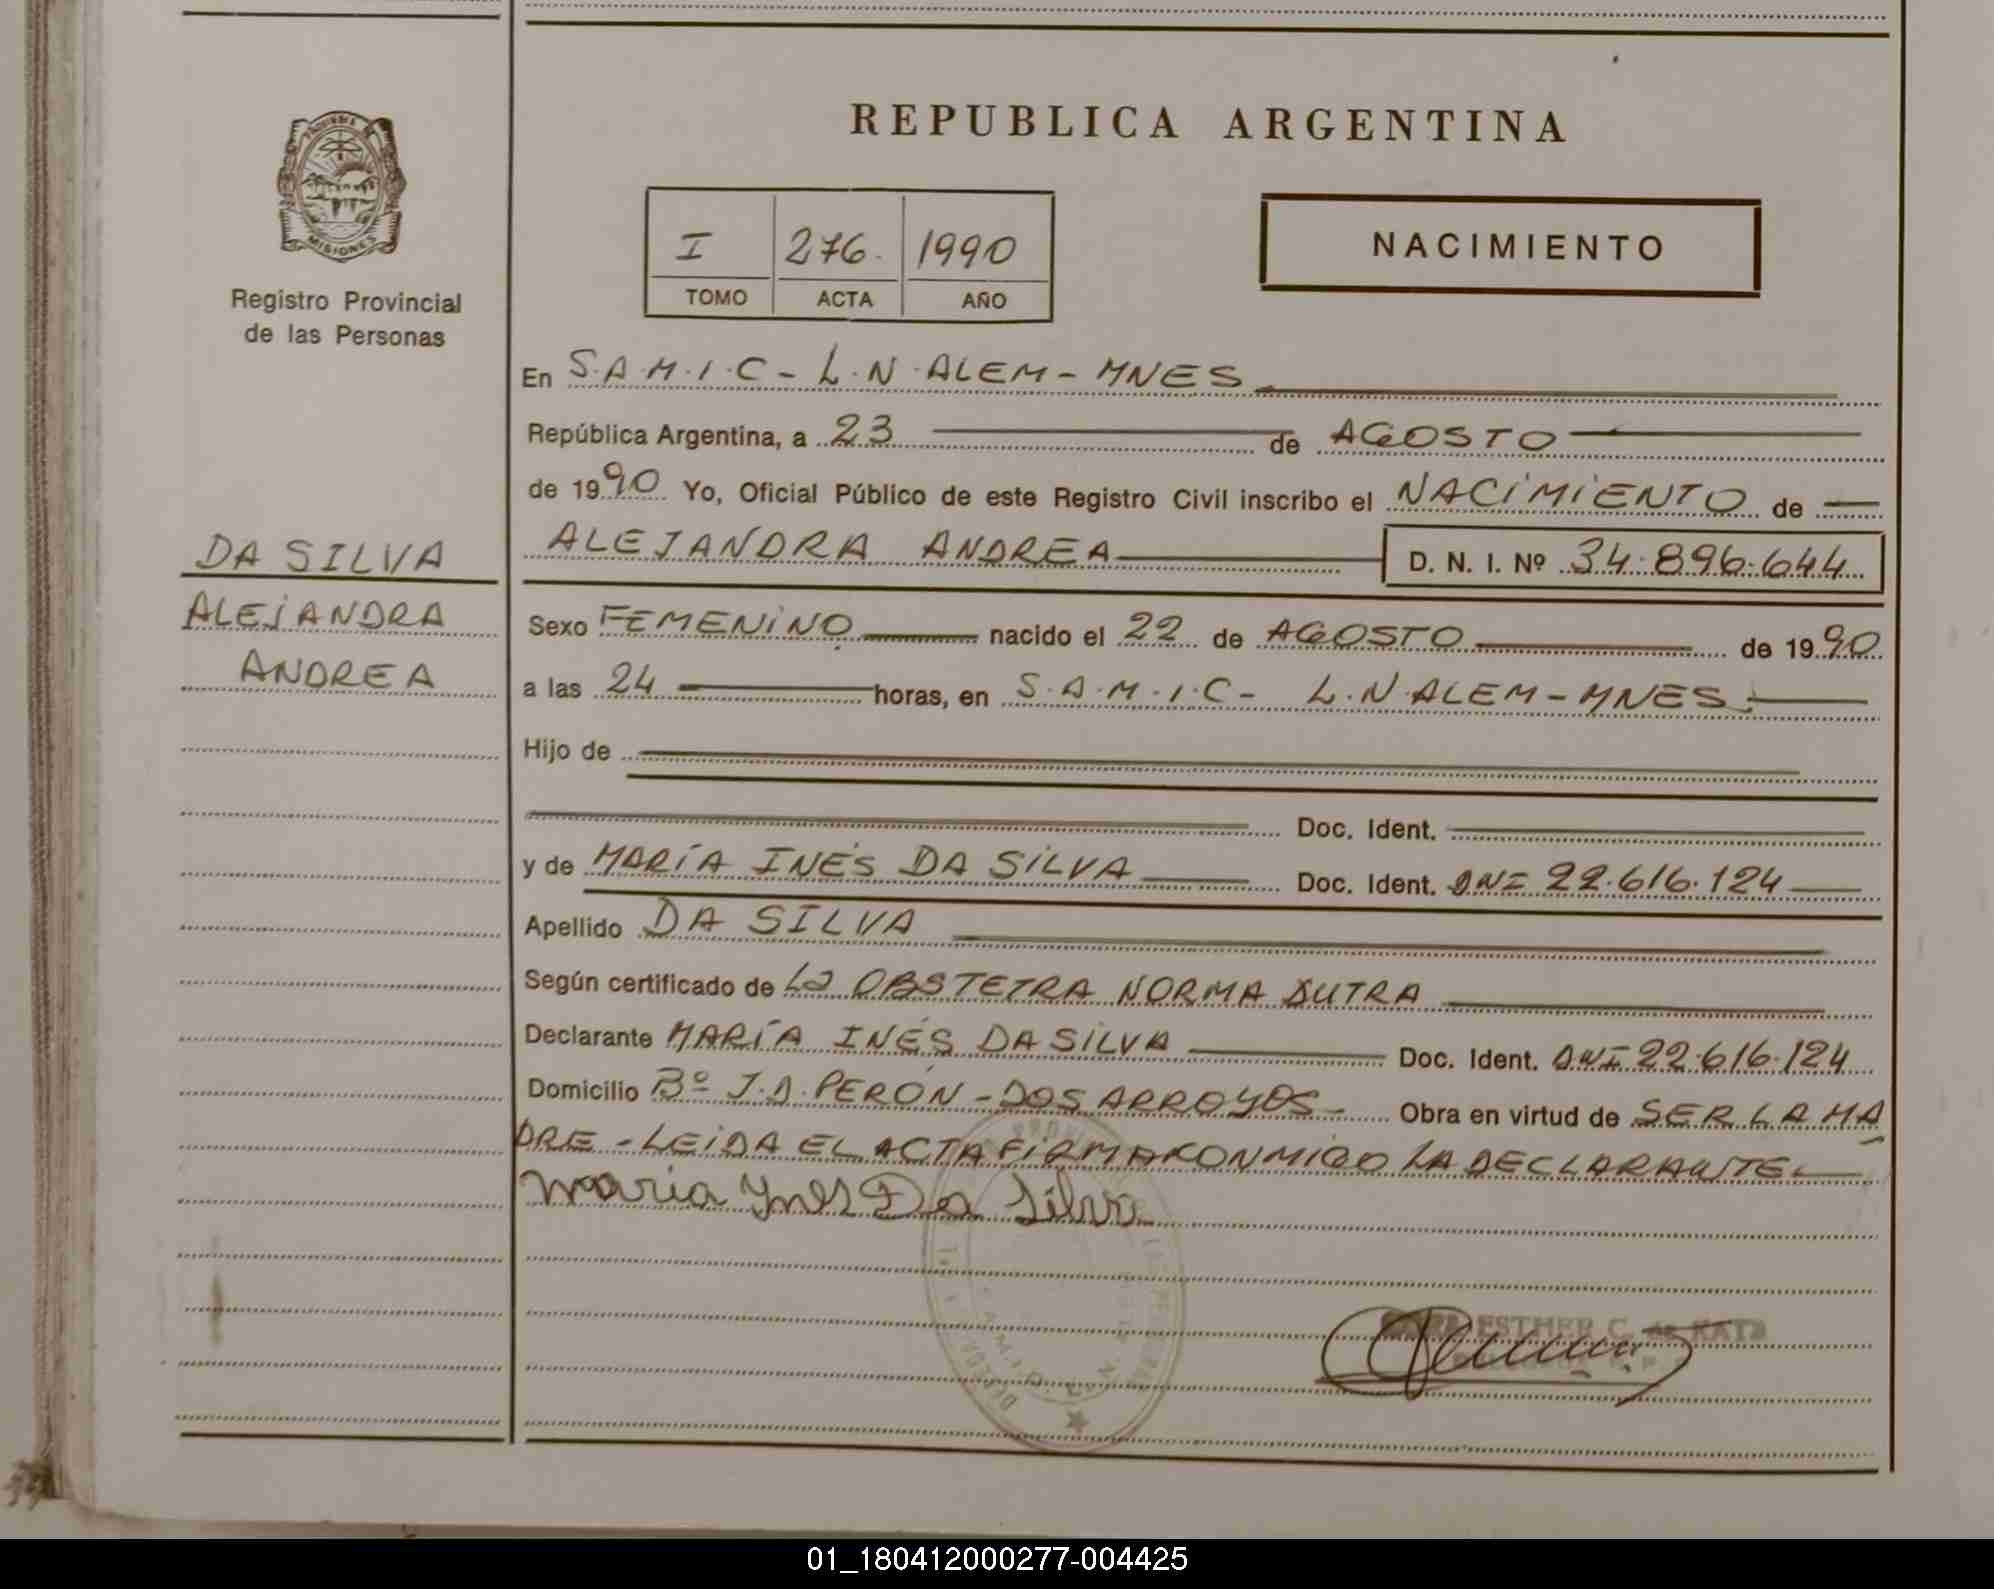 REPUBLICA ARGENTINA
PROVINCIA DE
MISIONES
Registro Provincial
de las Personas
I 276. 1990
TOMO ACTA AÑO
NACIMIENTO
En S.A.M.I.C - L.N.ALEM - MNES
República Argentina, a 23 de AGOSTO
de 1990 Yo, Oficial Público de este Registro Civil inscribo el NACIMIENTO de
DA SILVA
ALEJANDRA
ANDREA
ALEJANDRA ANDREA D. N. I. Nº 34.896.644
Sexo FEMENINO nacido el 22 de AGOSTO de 1990
a las 24 horas, en S.A.M.I.C - L.N.ALEM - MNES
Hijo de
Doc. Ident.
y de MARÍA INÉS DA SILVA Doc. Ident. DNI 22.616.124
Apellido DA SILVA
Según certificado de La OBSTETRA NORMA DUTRA
Declarante MARÍA INÉS DA SILVA Doc. Ident. DNI 22.616.124
Domicilio Bº J.D. PERÓN - DOS ARROYOS - Obra en virtud de SER LA MA
DRE - LEIDA EL ACTA FIRMA KONMIGO LA DECLARANTE -
Maria Ines Da Silva
ESTHER C. de KATZ
01_180412000277-004425